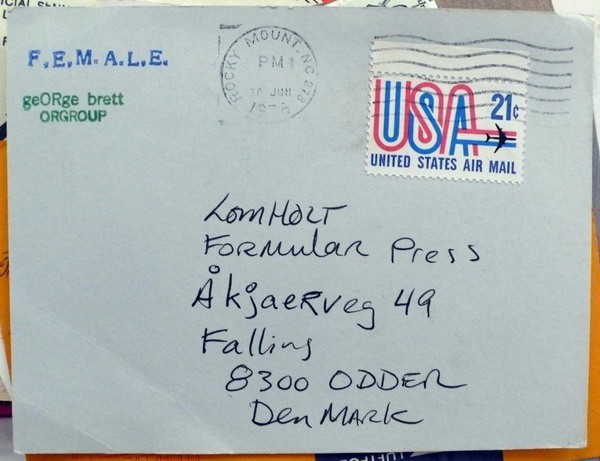 F.E.M.A.L.E.
geORge brett
ORGROUP
ROCKY MOUNT, NC 278
PM
30 JUN
USA 21¢
UNITED STATES AIR MAIL
LOMHOLT
FORMULAR Press
ÅkjaeRveg 49
Falling
8300 ODDER
DenMARK